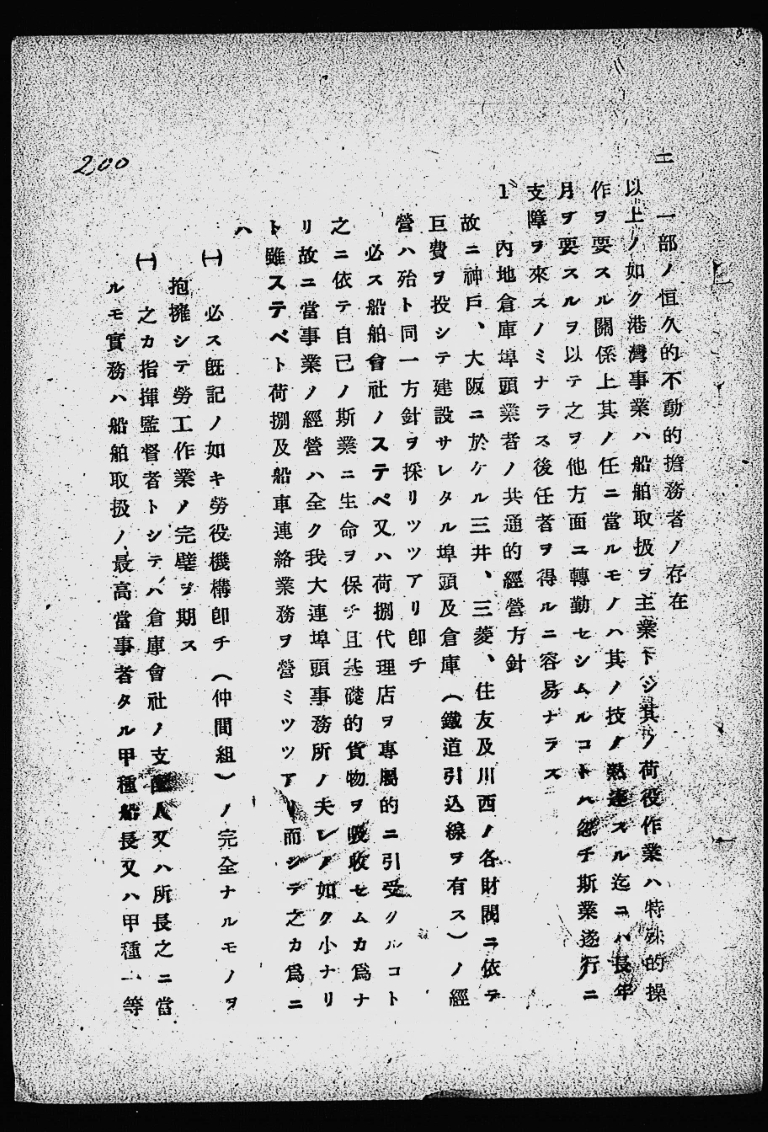 200
二 一部ノ恒久的不動的擔務者ノ存在
以上ノ如ク港灣事業ハ船舶取扱ヲ主業トシ其ノ荷役作業ハ特殊的操
作ヲ要スル關係上其ノ任ニ當ルモノハ其ノ技ノ熟達スル迄ニハ長年
月ヲ要スルヲ以テ之ヲ他方面ニ轉勤セシムルコトハ忽チ斯業遂行ニ
支障ヲ來スノミナラス後任者ヲ得ルニ容易ナラス
1 內地倉庫埠頭業者ノ共通的經營方針
故ニ神戶、大阪ニ於ケル三井、三菱、住友及川西ノ各財閥ニ依テ
巨費ヲ投シテ建設サレタル埠頭及倉庫(鐵道引込線ヲ有ス)ノ經
營ハ殆ト同一方針ヲ採リツツアリ卽チ
必ス船舶會社ノステベ又ハ荷捌代理店ヲ專屬的ニ引受クルコト
之ニ依テ自己ノ斯業ニ生命ヲ保チ且基礎的貨物ヲ吸收セムカ爲ナ
リ故ニ當事業ノ經營ハ全ク我大連埠頭事務所ノ夫レノ如ク小ナリ
ト雖ステベト荷捌及船車連絡業務ヲ營ミツツアリ而シテ之カ爲ニ
ハ
㈠ 必ス旣記ノ如キ勞役機構卽チ(仲間組)ノ完全ナルモノヲ
抱擁シテ勞工作業ノ完璧ヲ期ス
㈠ 之カ指揮監督者トシテハ倉庫會社ノ支配人又ハ所長之ニ當
ルモ實務ハ船舶取扱ノ最高當事者タル甲種船長又ハ甲種一等